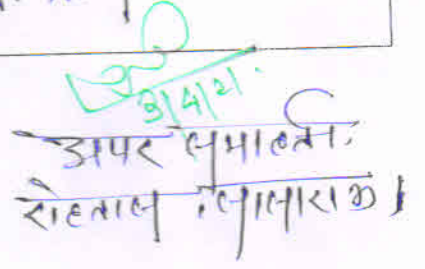 3/4/21.
अपर समाहर्ता,
रोहतास, सासाराम।